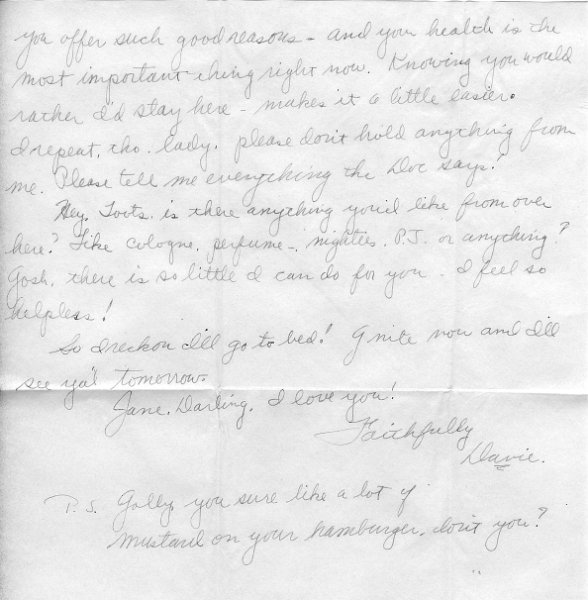 you offer such good reasons - and your health is the
most important thing right now. Knowing you would
rather I'd stay here - makes it a little easier.
I repeat, tho. lady. please don't hold anything from
me. Please tell me everything the Doc says!
Hey, Toots, is there anything you'd like from over
here? Like cologne, perfume -, nighties, P.J. or anything?
Gosh, there is so little I can do for you. I feel so
helpless!
So I reckon I'll go to bed! G'nite now and I'll
see ya'l tomorrow.
Jane, Darling, I love you!
Faithfully
Davie.
P.S. Golly you sure like a lot of
mustard on your hamburger, don't you?